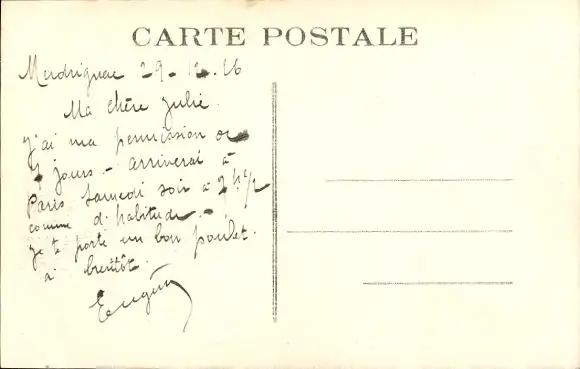 CARTE POSTALE
Merdrignac 29 - 12 - 16
Ma chère Julie.
J'ai ma permission de
4 jours. - arriverai à
Paris Samedi soir à 7h 1/2
comme d'habitude. -
Je te porte un bon poulet.
à bientôt.
Eugène